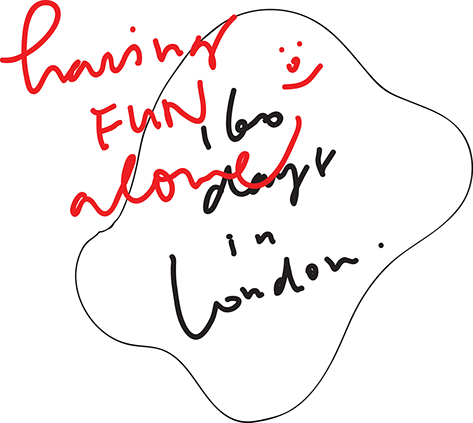 having
FUN
alone
days
in
London.